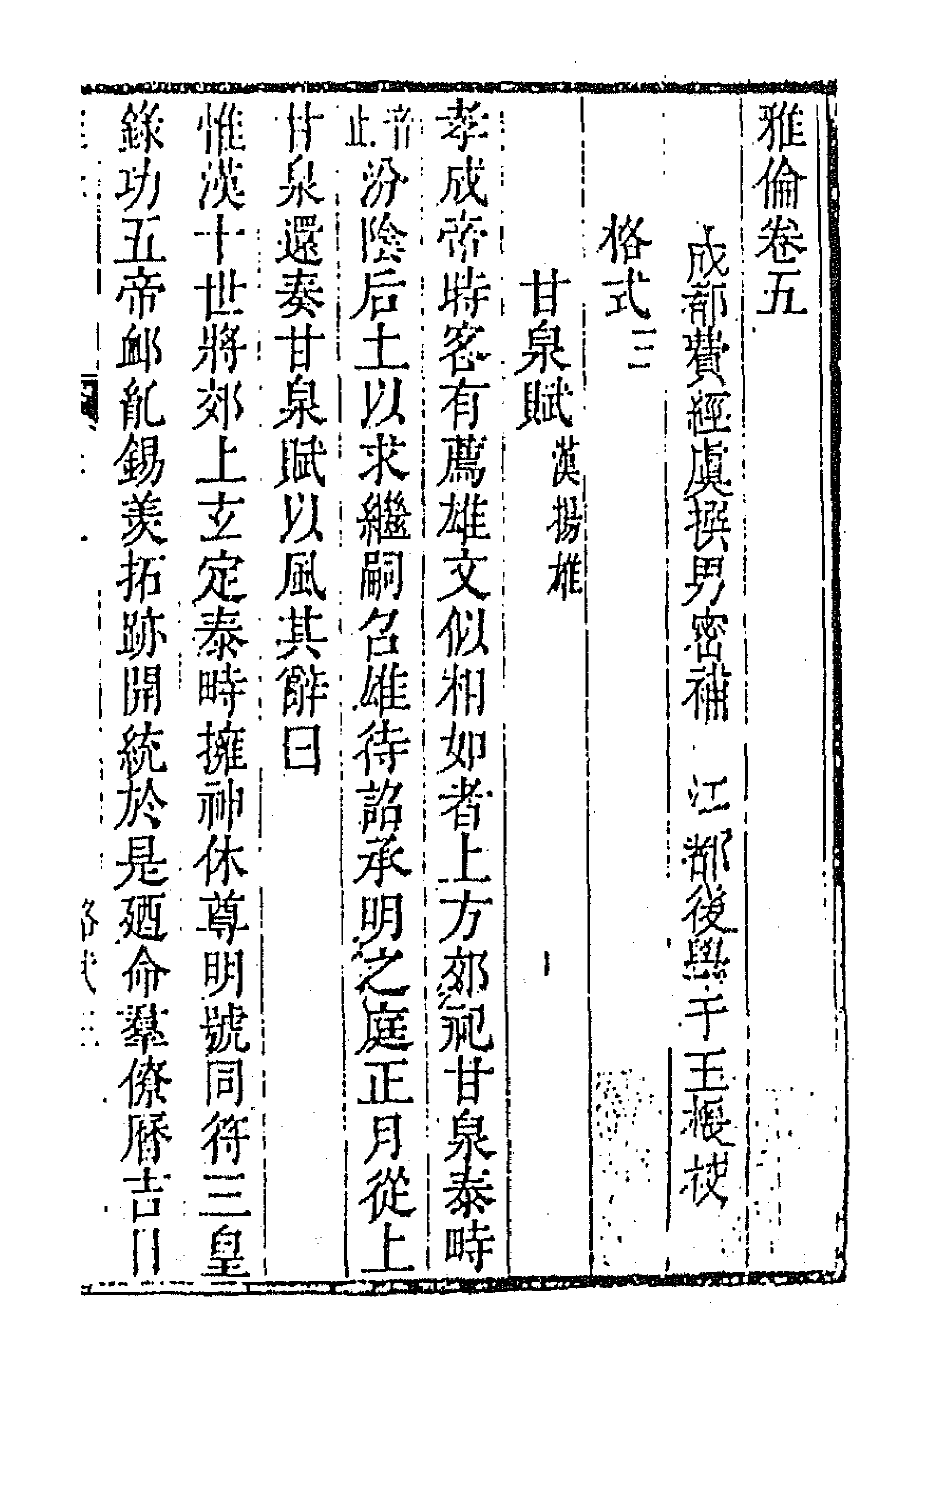 雅倫卷五
成都費經虞撰男密補 江都後學于王棖校
格式三
甘泉賦漢揚雄
孝成帝時客有薦雄文似相如者上方郊祀甘泉泰時
音止汾陰后土以求繼嗣召雄待詔承明之庭正月從上
甘泉還奏甘泉賦以風其辭曰
惟漢十世將郊上玄定泰時擁神休尊明號同符三皇
錄功五帝卹胤錫羨拓跡開統於是廼命羣僚曆吉日